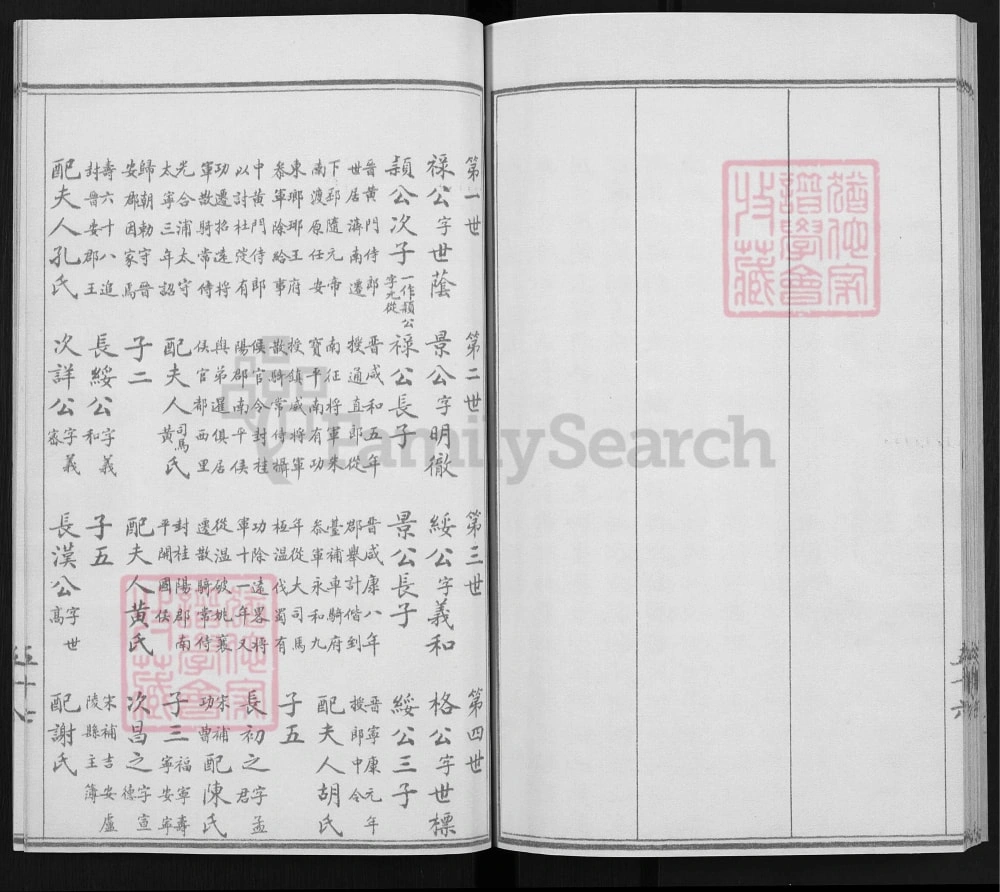 猶他家
譜學會
收藏
第一世
祿公字世蔭
頴公次子一作頴公字元從
晉黃門侍郎
世居濟南遷
下邳隨元帝
南渡原任安
東瑯琊王府
參軍除給事
中黃門侍郎
以討杜弢有
功遷招遠將
軍散騎常侍
光合浦太守
太寧三年詔
歸朝勅守晉
安郡因家焉
壽六十八進
封晉安郡王
配夫人孔氏
第二世
景公字明徹
祿公長子
晉咸和五年
授通直郎從
南征將軍朱
寶平南有功
授鎮威將軍
散騎常侍攝
侯官令封桂
陽郡南平侯
與弟暹俱居
侯官都西里
配夫人司馬黃氏
子二
長綏公字義和
次詳公字義審
第三世
綏公字義和
景公長子
晉咸康八年
郡舉計偕到
臺補車騎府
參軍永和九
年從大司馬
桓溫伐蜀有
功除遠畧將
軍十一年又
從溫破姚襄
遷散騎常侍
封桂陽郡南
平開國侯
配夫人黃氏
子五
長漢公字世高
第四世
格公字世標
綏公三子
晉寧康元年
授郎中令
配夫人胡氏
子五
長初之字孟君
宋補功曹配陳氏
子三福寧壽寧安寧
次昌之字宣德
宋補吉安廬
陵縣主簿
配謝氏
猶他家
譜學會
收藏
FamilySearch